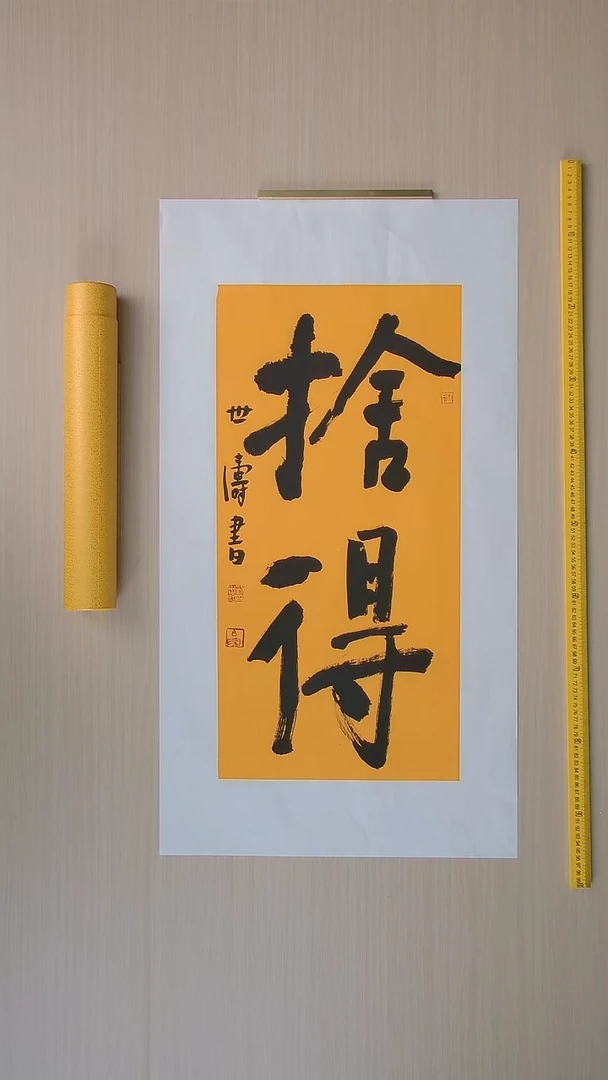 捨得
世濤書